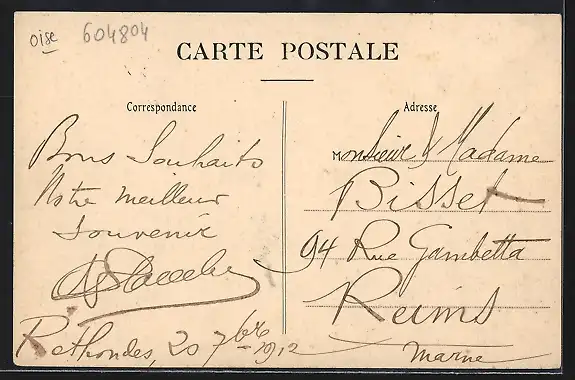 Oise 604804
CARTE POSTALE
Correspondance
Bons Souhaits
Notre meilleur
Souvenir
Réthondes, 20 7bre 1912
Adresse
Monsieur & Madame
Bisset
94 Rue Gambetta
Reims
Marne